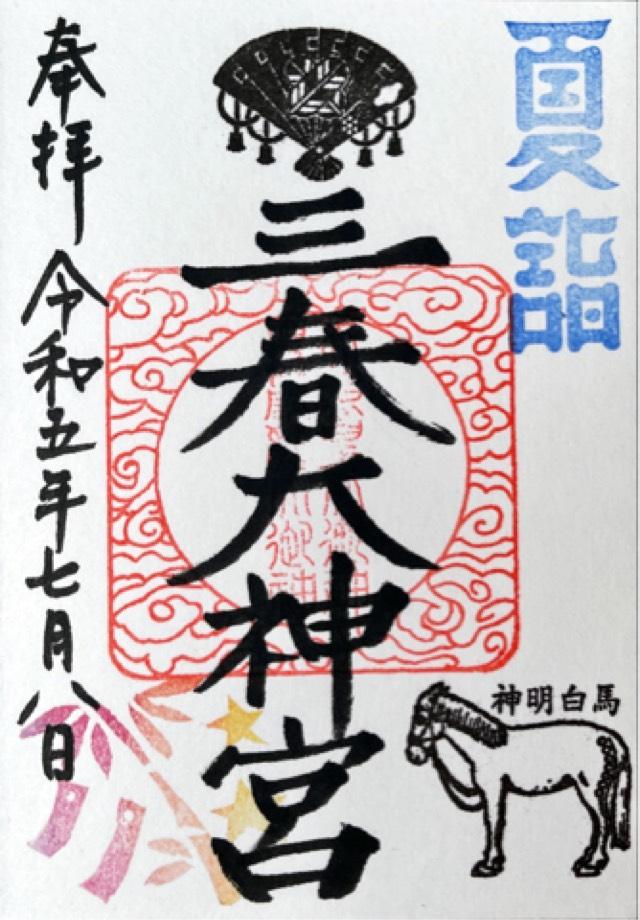 夏詣
三春大神宮
奉拝 令和五年七月八日
神明白馬